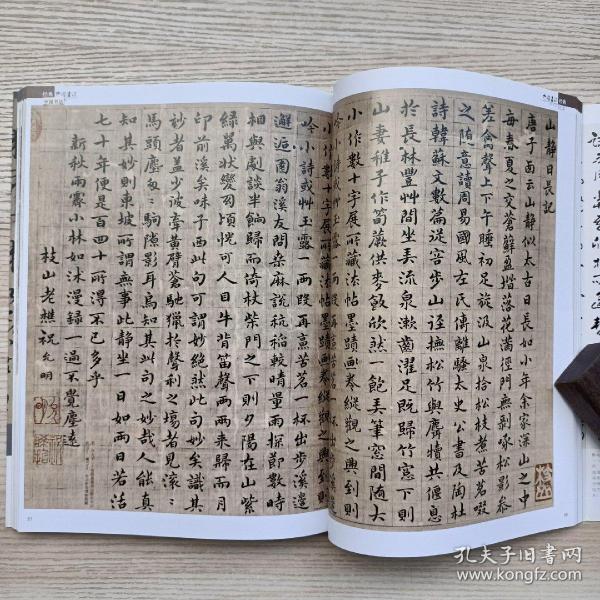 山静日長記
唐子西云山静似太古日長如小年余家深山之中
每春夏之交蒼蘚盈堦落花滿徑門無剥啄松影参
差禽聲上下午睡初足旋汲山泉拾松枝煮苦茗啜
之随意讀周易國風左氏傳離騷太史公書及陶杜
詩韓蘇文數篇從容步山逕撫松竹與麛犢共偃息
於長林豐艸間坐弄流泉漱齒濯足既歸竹窓下則
山妻稚子作筍蕨供麥飯欣然一飽弄筆窓間随大
小作數十字展所藏法帖墨蹟画卷縱觀之興到則
吟小詩或艸玉露一兩段再烹苦茗一杯出步溪邊
小作數十字展所藏法帖墨蹟画卷縱觀之興到則
吟小詩或艸玉露一兩段再烹苦茗一杯出步溪邊
邂逅園翁溪友問桑麻説秔稻較晴量雨探節數時
相與劇談半餉歸而倚杖柴門之下則夕陽在山紫
緑萬狀變幻頃恍可人目牛背笛聲兩兩来歸而月
印前溪矣味子西此句可謂妙絶然此句妙矣識其
妙者盖少彼牽黄臂蒼馳獵於聲利之塲者見滚〻
馬頭塵匆〻駒隙影耳烏知其此句之妙哉人能真
知其妙則東坡所謂無事此静坐一日如兩日若活
七十年便是百四十所得不已多乎
新秋雨霽小林如沐漫録一過不覺塵遠
枝山老樵祝允明
孔夫子旧书网
www.kongfz.com